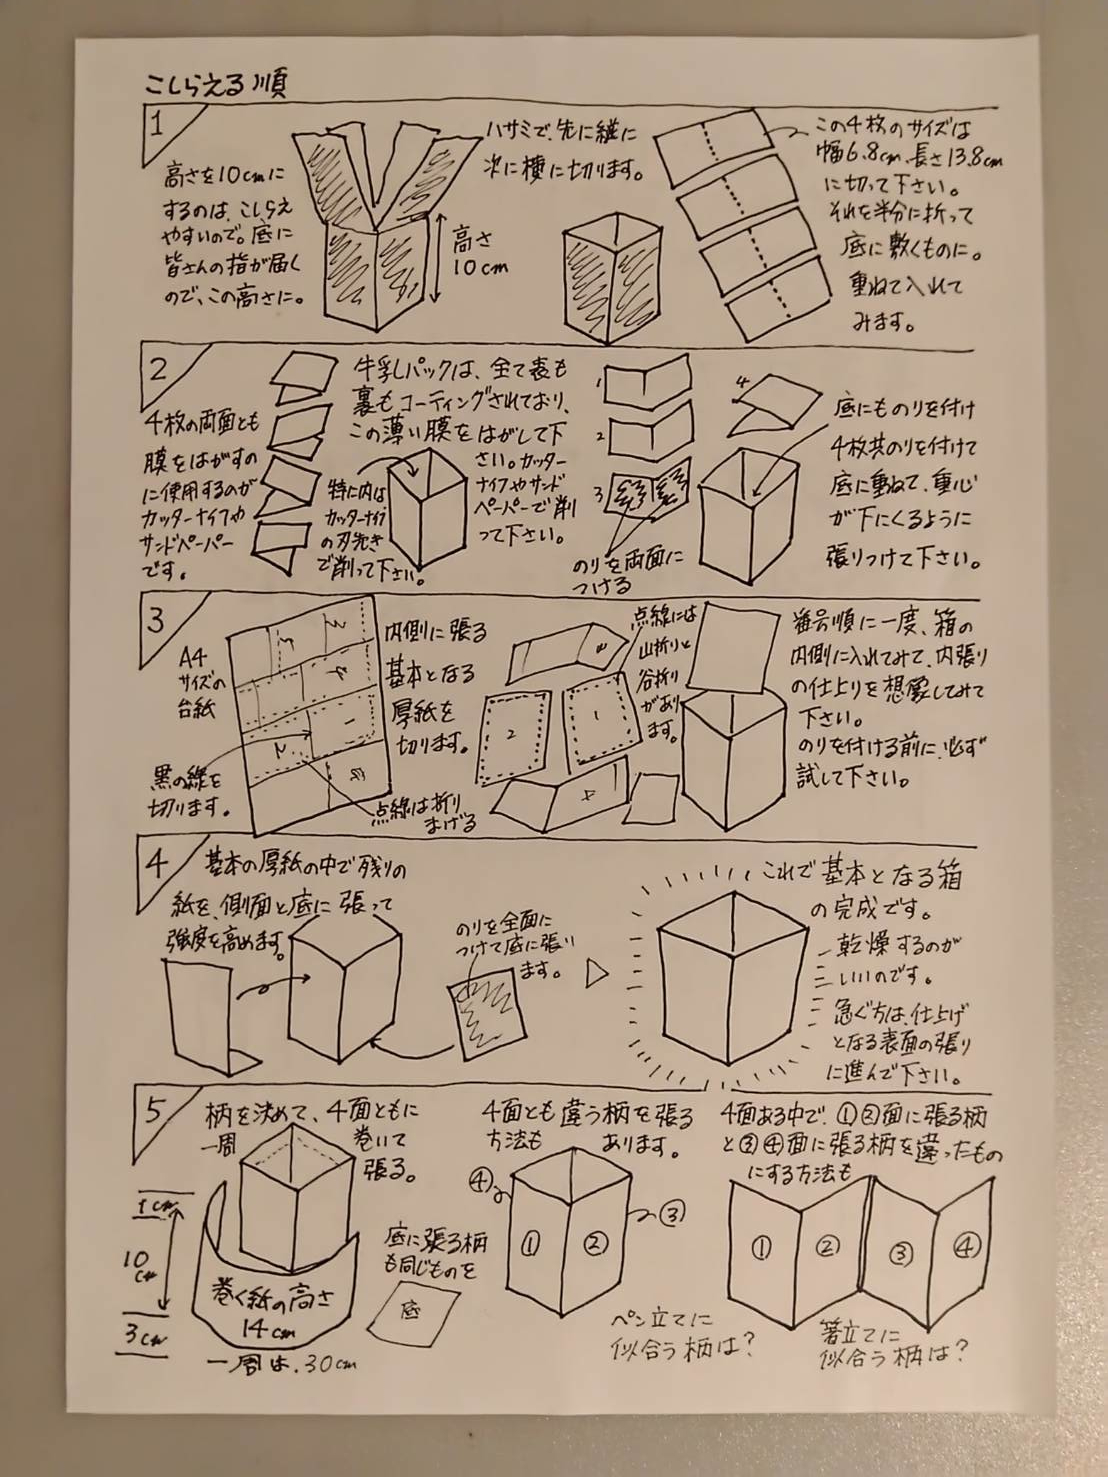 こしらえる順
1
高さを10cmに
するのは、こしらえ
やすいので。底に
皆さんの指が届く
ので、この高さに。
高さ
10cm
ハサミで、先に縦に
次に横に切ります。
この4枚のサイズは
幅6.8cm、長さ13.8cm
に切って下さい。
それを半分に折って
底に敷くものに。
重ねて入れて
みます。
2
4枚の両面とも
膜をはがすの
に使用するのが
カッターナイフや
サンドペーパー
です。
牛乳パックは、全て表も
裏もコーティングされており、
この薄い膜をはがして下
さい。カッター
ナイフやサンド
ペーパーで削
って下さい。
特に内は
カッターナイフ
の刃先き
で削って下さい。
1
2
3
4
のりを両面に
つける
底にものりを付け
4枚共のりを付けて
底に重ねて、重心
が下にくるように
張りつけて下さい。
3
A4
サイズの
台紙
黒の線を
切ります。
点線は折り
まげる
内側に張る
基本となる
厚紙を
切ります。
2
1
点線には
山折りと
谷折り
があり
ます。
番号順に一度、箱の
内側に入れてみて、内張り
の仕上りを想像してみて
下さい。
のりを付ける前に、必ず
試して下さい。
4
基本の厚紙の中で残りの
紙を、側面と底に張って
強度を高めます。
のりを全面に
つけて底に張り
ます。
これで基本となる箱
の完成です。
乾燥するのが
いいのです。
急ぐ方は、仕上げ
となる表面の張り
に進んで下さい。
5
柄を決めて、4面ともに
一周 巻いて
張る。
1cm
10cm
3cm
巻く紙の高さ
14cm
一周は、30cm
底に張る柄
も同じものを
底
4面とも違う柄を張る
方法も あります。
④
③
①
②
ペン立てに
似合う柄は?
4面ある中で、①②面に張る柄
と③④面に張る柄を違ったもの
にする方法も
①
②
③
④
箸立てに
似合う柄は?